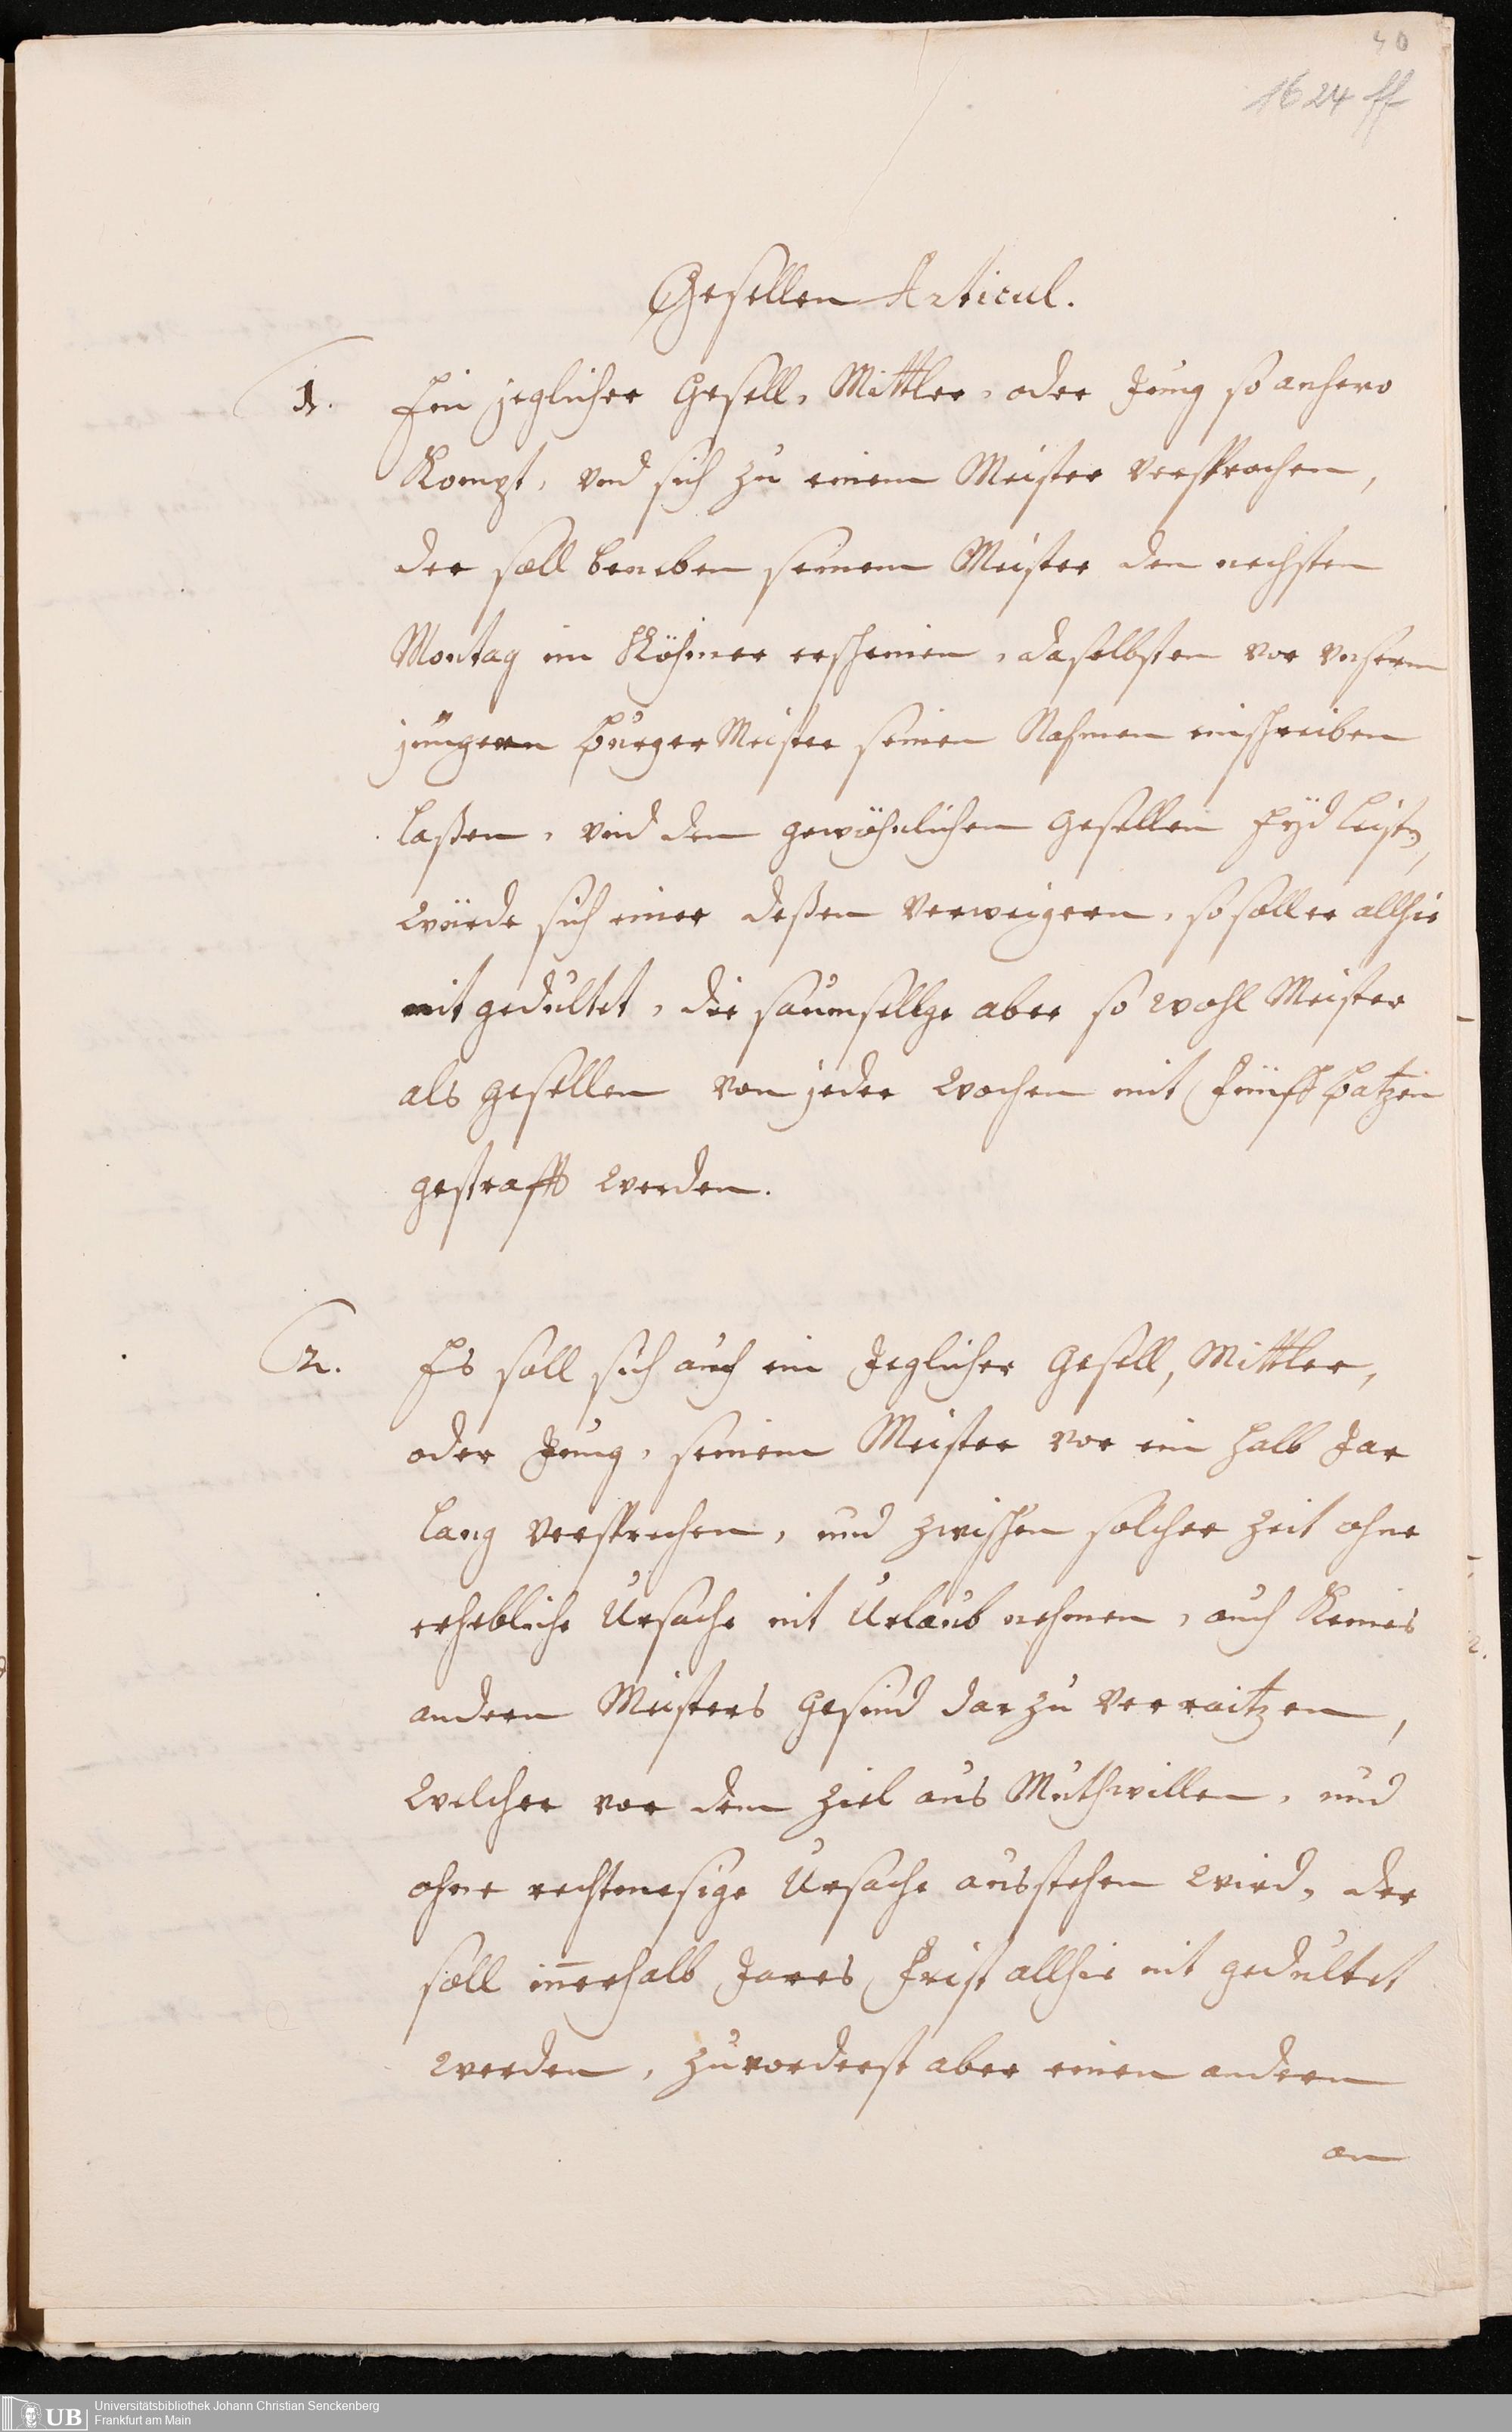 40
1624 ff
Gesellen Articul.
1. Ein jeglicher Gesell, Mittler, oder Jung so anhero
Kompt, vnd sich zu einem Meister versprochen,
der soll beneben seinem Meister den nechsten
Montag im Röhmer erscheinen, daselbsten vor vnserm
jüngern BurgerMeister seinen Nahmen einschreiben
laßen, vnd den gewöhnlichen Gesellen Eyd leisten,
würde sich einer deßen verweigern, so soll er allhie
nit gedultet, die saumsellge aber so wohl Meister
als gesellen von jeder wochen mit Fünff Batzen
gestrafft werden.
2. Es soll sich auch ein Jeglicher Gesell, Mittler,
oder Jung, seinem Meister vor ein halb Jar
lang versprechen, und zwischen solcher Zeit ohne
erhebliche Ursache nit Urlaub nehmen, auch Keines
andern Meisters Gesind darzu verraitzen,
welcher vor dem Ziel aus Muthwillen, und
ohne rechtmesige Ursache ausstehen wird, der
soll innerhalb Jares Frist allhie nit gedultet
werden, zuvorderst aber einen andern
an
Universitätsbibliothek Johann Christian Senckenberg
Frankfurt am Main
UB